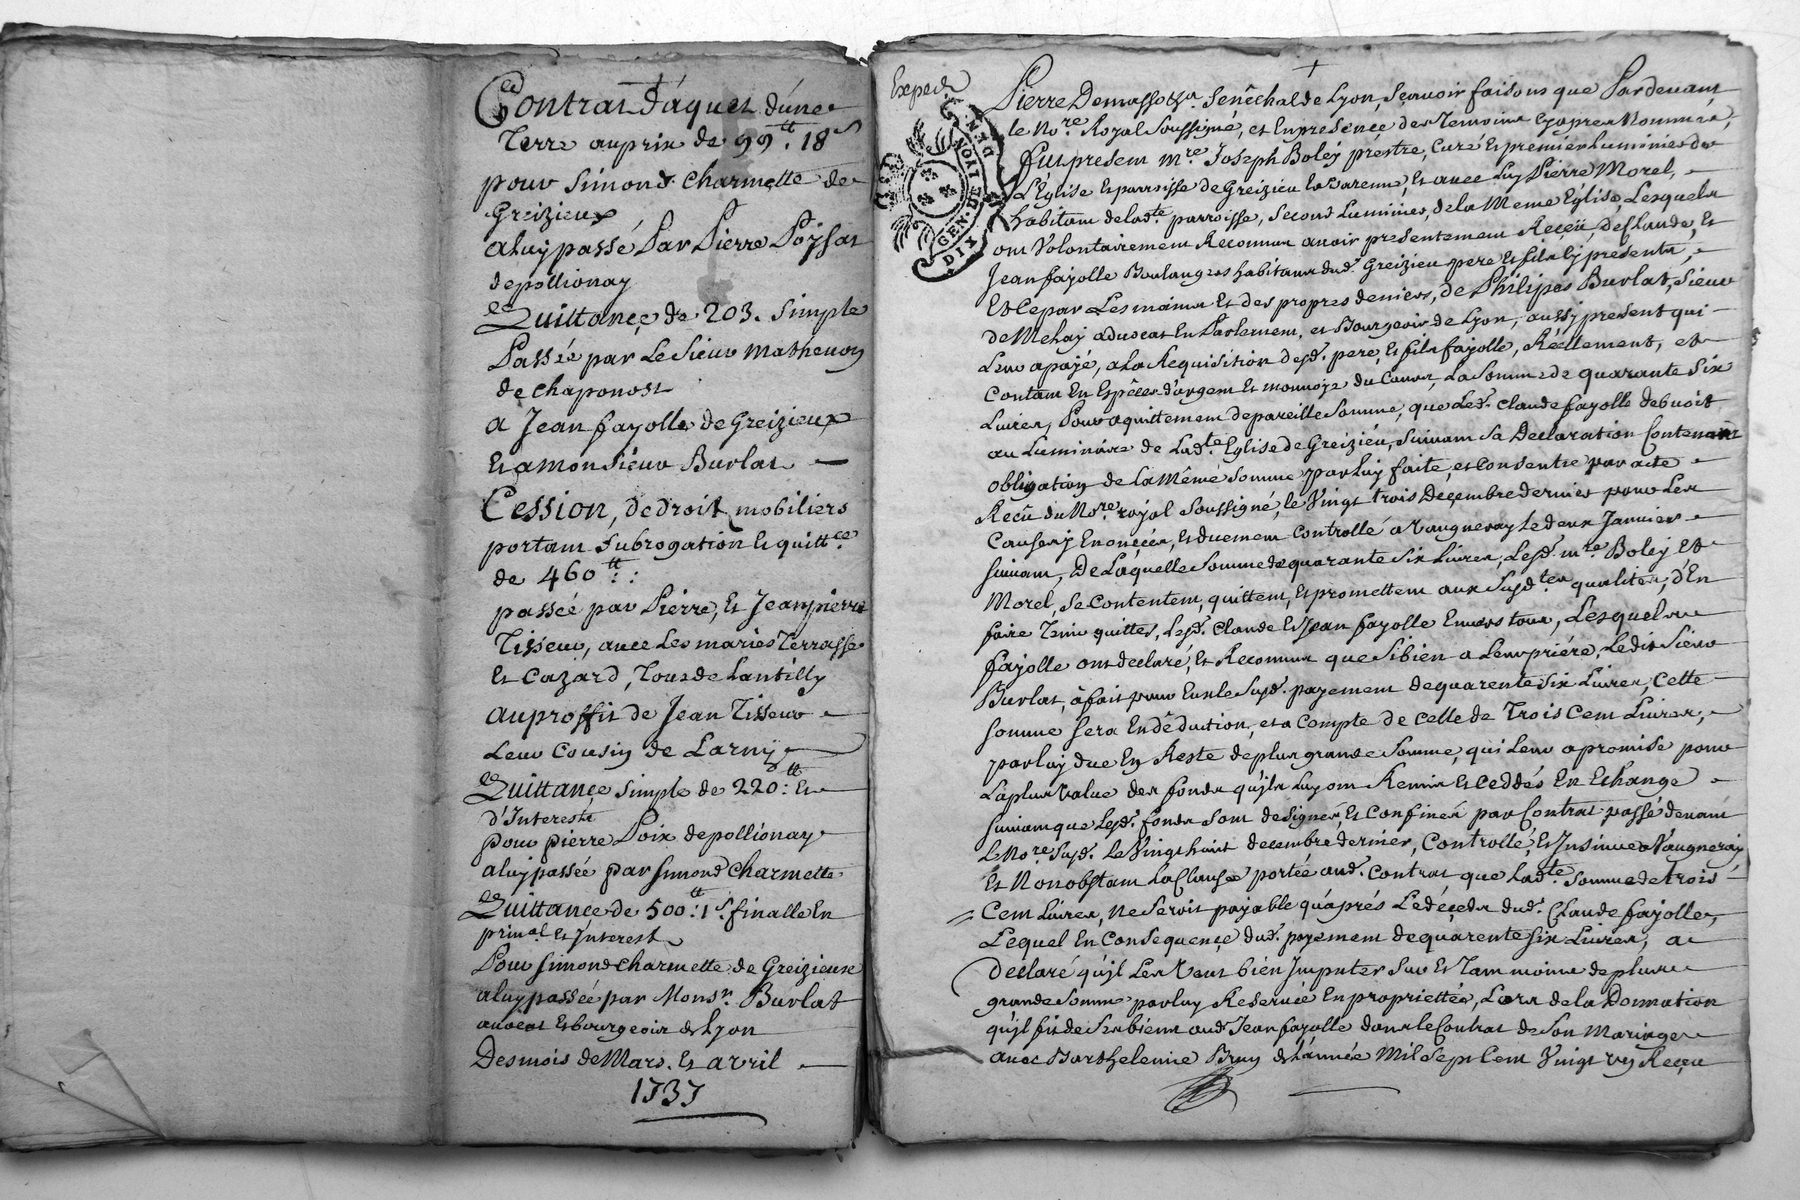 Contrat d'aquet d'une
Terre au prix de 99tt. 18s
pour Simond Charmette de
Greizieux
a luy passé Par Pierre Poysat
de pollionay
Quittance de 203. Simple
Passée par Le Sieur Mathevon
de chaponost
A Jean fayolle de Greizieux
Et a monsieur Burlat
Cession, de droit mobiliers
portant Subrogation Et quittce
de 460tt:
passée par Pierre, Et Jean pierre
Tisseur, avec Les mariés Terrasse
Et Cazard, Tous de Lantilly
au proffit de Jean Tisseur
Leur Cousin de Larny
Quittance simple de 220tt: Et
d'Interests
pour pierre Poix de pollionay
a luy passée par Simond Charmette
Quittance de 500tt: 1s. finalle En
prinal Et Interest
Pour Simond Charmette de Greizieux
a luy passée par Monsr. Burlat
avocat Et bourgeois de Lyon
Des mois de Mars. Et avril
1737
Exped
DIX DEN
GEN. DE LYON
Pierre Demasso &a. Senêchal de Lyon, Sçavoir faisons que Pardevant
le Nore. Royal Soussigné, et En presence des Temoins Cy apres Nommés,
fut present mre. Joseph Boléy prestre, Curé Et premier Luminier de
L'Eglise Et parroisse de Greizieu La varenne, Et avec Luy Pierre Morel,
habitant de ladte. parroisse, Second Luminier, de la Meme Eglise, Lesquels
ont Volontairement Reconnu avoir presentement Reçeü, de Claude, Et
Jean fayolle Boulangers habitans dud. Greizieu pere Et fils Cy presents,
Et Ce par Les mains Et des propres deniers, de Philipes Burlat, Sieur
de Mehay advocat En Parlement, et Bourgeois de Lyon, aussy present qui
Leur a payé, a La Requisition desd. pere, Et fils fayolle, Réellement, et
Contant En Espêces d'argent Et monnoye du Cours, La Somme de quarante Six
Livres, Pour aquittement de pareille Somme, que Led. Claude fayolle debvoit
au Luminaire de Ladte. Eglise de Greizieu, Suivant Sa Declaration Contenant
obligation de la Même Somme par Luy faite, et Consentie par acte
Reçû du Nore. royal Soussigné, le Vingt trois Deçembre dernier pour Les
Causes y Enoncées, Et duement Controllé a Vaugneray Le deux Janvier
Suivant, De Laquelle Somme de quarante Six Livres, Lesd. mre. Boley Et
Morel, Se Contentent, quittent, Et promettent aux Susd.tes qualités, d'En
faire Tenir quittes, Lesd. Claude Et Jean fayolle Envers tous, Lesquels
fayolle ont declaré, Et Reconnu que Si bien a Leur priére, Ledit Sieur
Burlat, a fait pour Eux le Susd. payement de quarente Six Livres, Cette
Somme Sera En dêduction, et a Compte de Celle de Trois Cent Livres,
par luy due En Reste de plus grande Somme, qui Leur a promise pour
La plus Value des fonds qu'jls Luy ont Remis Et Ceddés En Echange
Suivant que Lesd. fonds Sont designés, Et Confinés par Contrat passé devant
Le Nore. Susd. Le Vingt huit decembre dernier, Controllé, Et Insinué a Vaugneray
Et Nonobstant La Clause portée aud. Contrat que Ladte. Somme de trois
Cent Livres, Ne Seroit payable qu'aprés Le deçeds dud. Claude fayolle,
Lequel En Consequençe dud. payement de quarente Six Livres, a
declaré qu'jl Les Veut bien Imputer Sur Et Tant moins de plus
grande Somme par luy Reservée En proprietté, Lors de la Donnation
qu'jl fit de Ses biens aud. Jean fayolle dans le Contrat de Son Mariage
avec Barthelemie Brun de L'année Mil Sept Cent Vingt un Reçeu